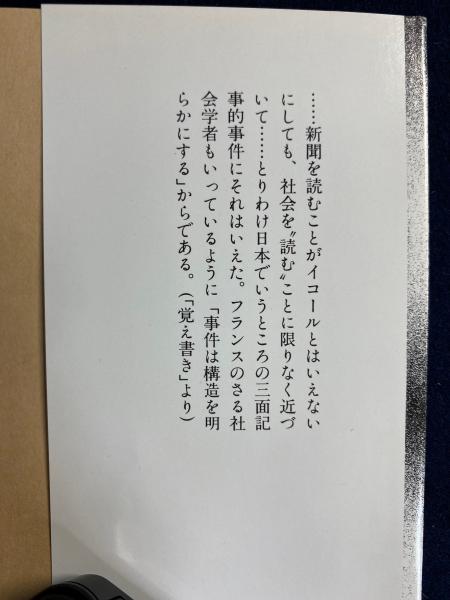 ……新聞を読むことがイコールとはいえない
にしても、社会を〝読む〟ことに限りなく近づ
いて……とりわけ日本でいうところの三面記
事的事件にそれはいえた。フランスのさる社
会学者もいっているように「事件は構造を明
らかにする」からである。（「覚え書き」より）